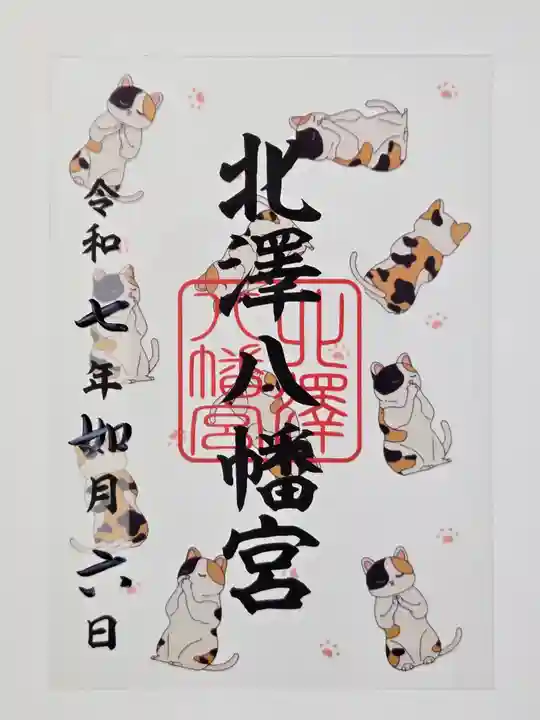 北澤八幡宮
北澤
八幡宮
令和七年如月六日